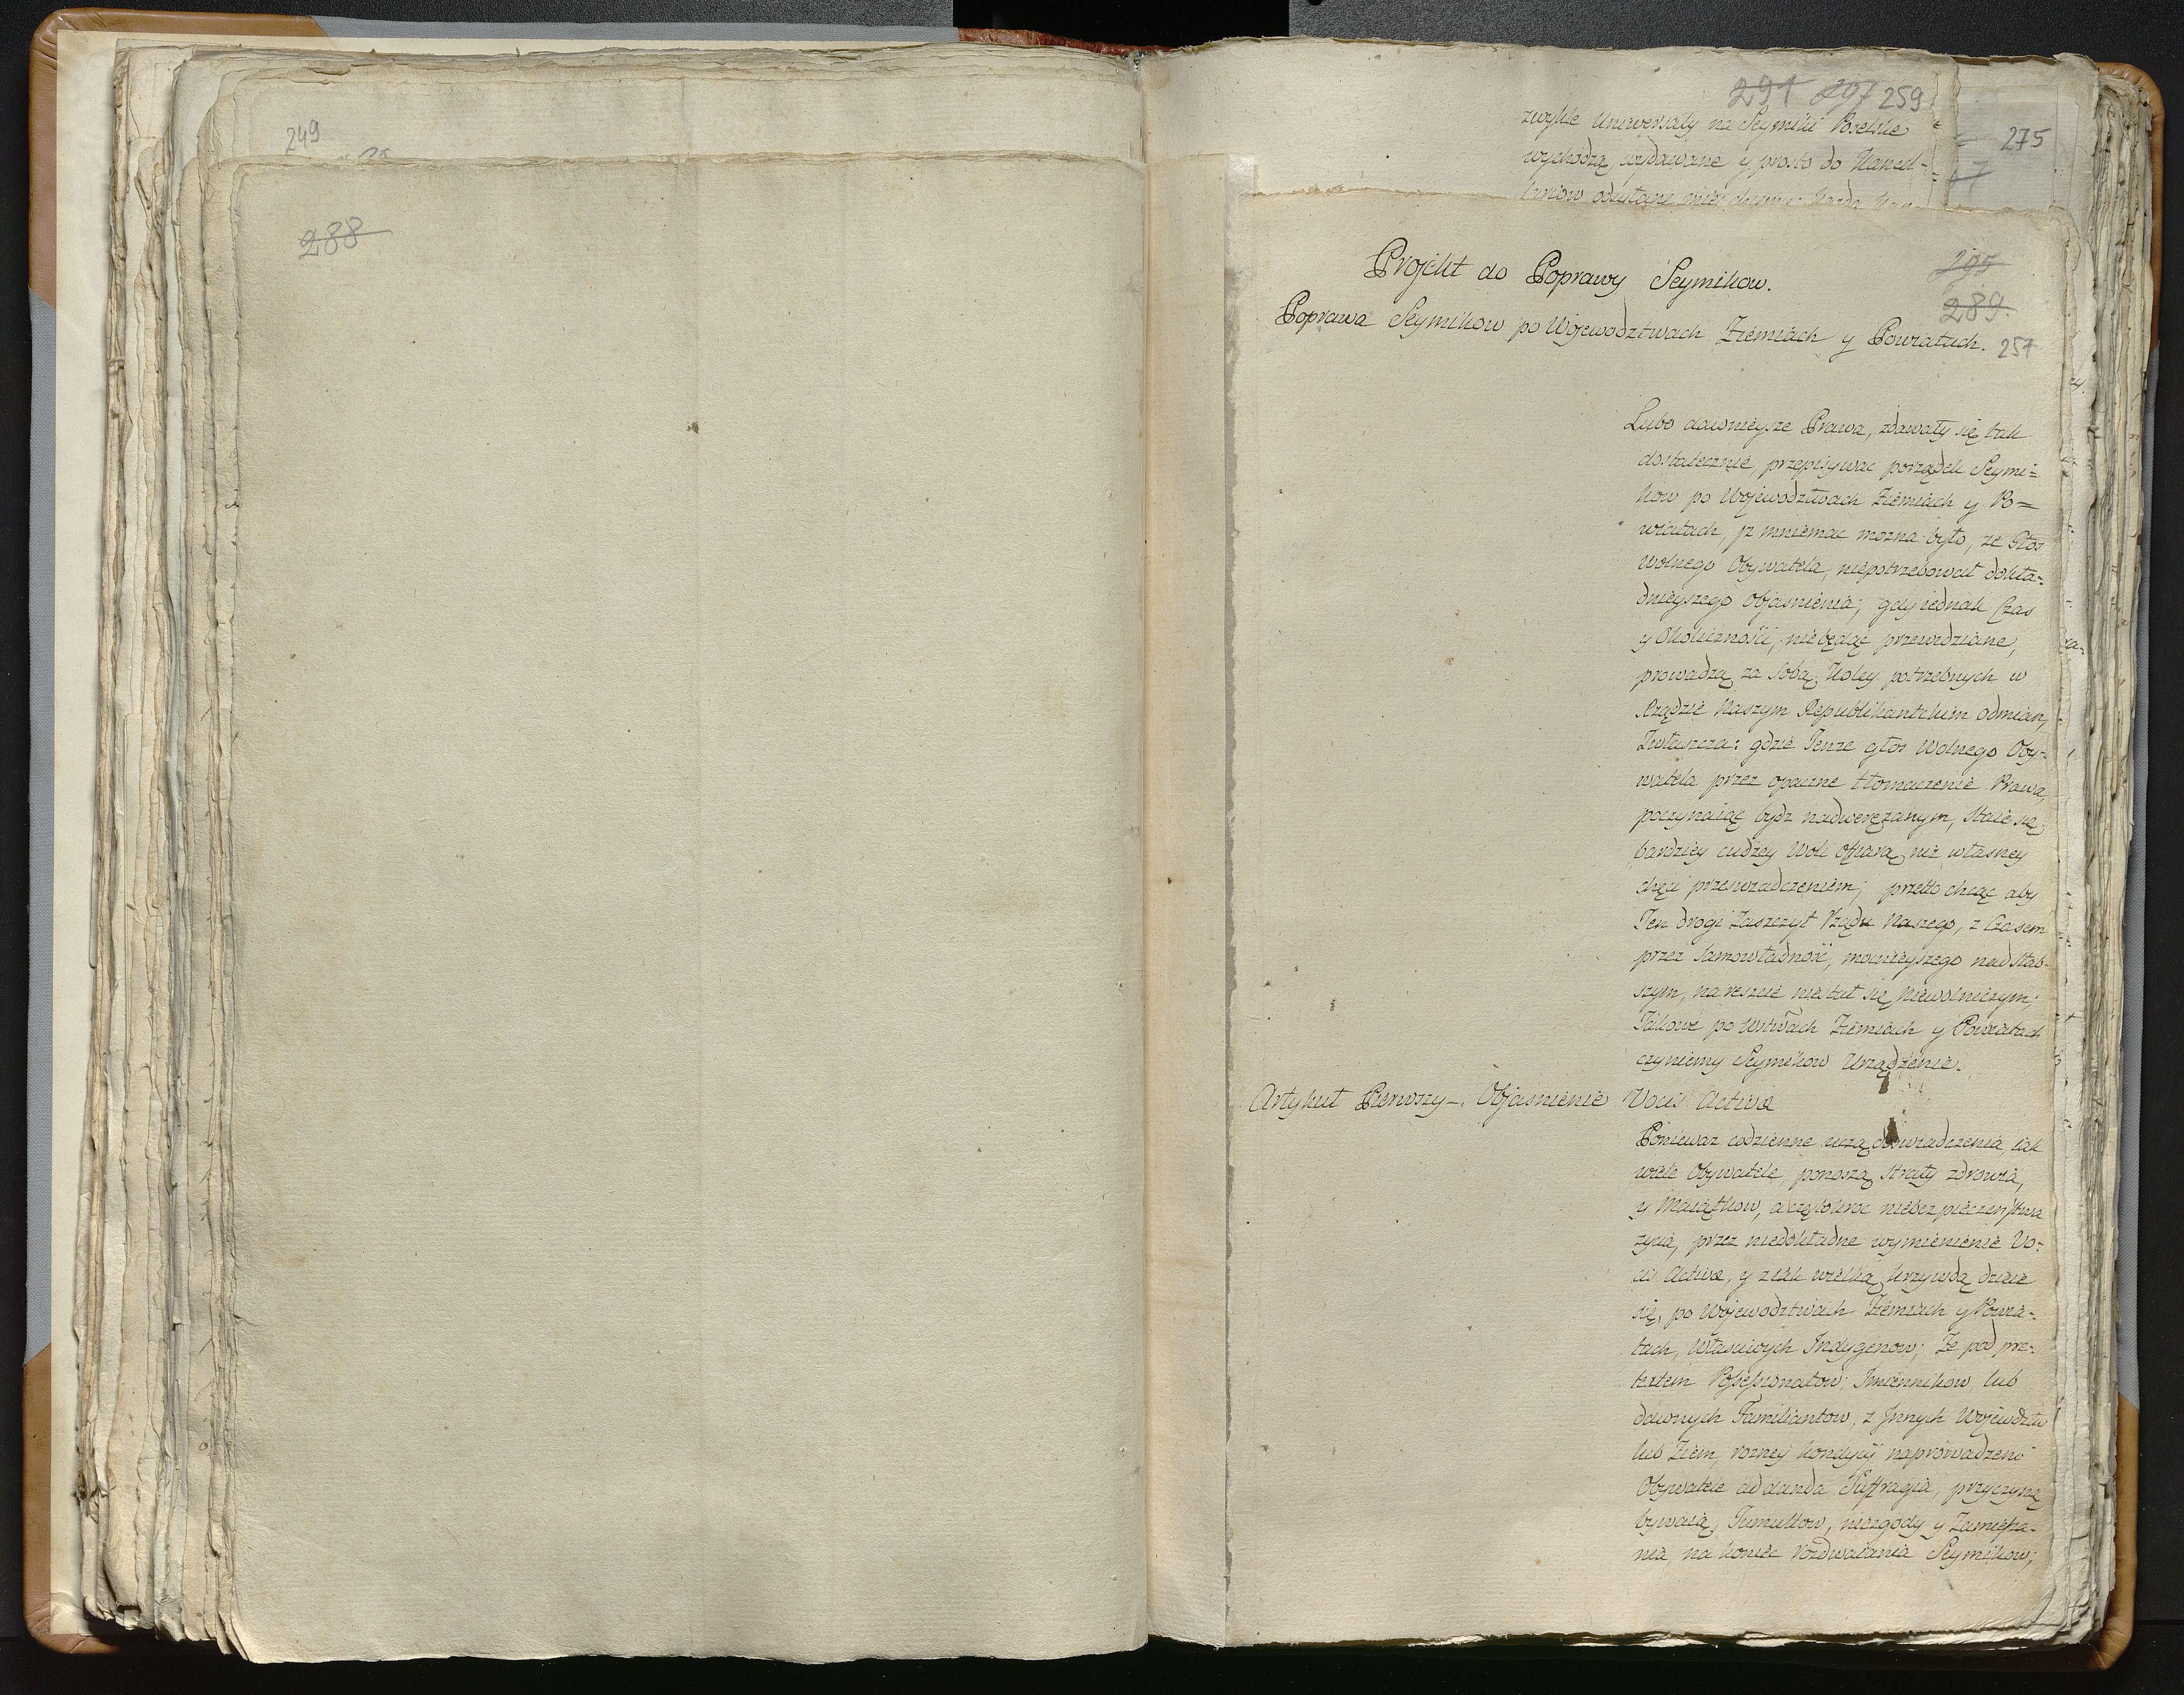 249
288
291 297 259
zwykle Uniwersały na Seymiki Poselskie
wychodzą, wydawane y prosto do Kancel-
275
Projekt do Poprawy Seymikow.
295
289.
Poprawa Seymikow po Woiewodztwach Ziemiach y Powiatach.
257
Lubo dawnieysze Prawa, zdawały się tak
dostatecznie, przepisywac porządek Seymi=
kow po Woiewodztwach Ziemiach y Po=
wiatach, iz mniemac mozna było, ze Głos
Wolnego Obywatela, niepotrzebował dokła=
dnieyszego Objasnienia; gdy iednak Czas
y Okolicznosci, niebędąc przewidziane,
prowadzą za sobą Koley potrzebnych w
Rządzie Naszym Republikantskim odmian,
Zwłaszcza: gdzie Tenze głos Wolnego Oby=
watela przez opaczne tłomaczenie Prawa,
poczynaiąc bydz nadweręzanym, staie się
bardziey cudzey Woli ofiarą, niz własney
chęci przeswiadczeniem; przetto chcąc aby
Ten drogi Zaszczyt Rządu Naszego, z Czasem
przez samowładnosć, mocnieyszego nad słab-
szym, na reszcie niestał się Niewolniczym;
Takowe po Wztwach Ziemiach y Powiatach
czyniemy Seymikow Urządzenie.
Artykuł Pierwszy -. Objasnienie Vocis Activæ
Poniewaz codzienne uczą doswiadczenia, iak
wiele Obywatele, ponoszą straty zdrowia,
y Maiątkow, a częstokroc niebezpieczenstwa
zycia, przez niedokładne wymienienie Vo=
cis Activæ, y z iak wielką krzywdą dzieie
się, po Woiewodztwach Ziemiach y Powia=
tach, Własciwych Indygenow; Ze pod pre=
textem Possessionatow; Imiennikow lub
dawnych Familiantow, z Innych Woiewdztw
lub Ziem, rozney kondycyi naprowadzeni
Obywatele ad danda Suffragia, przyczyną
bywaią, Tumultow, niezgody y Zamiesza-
nia, na koniec Rozdwaiania Seymikow;